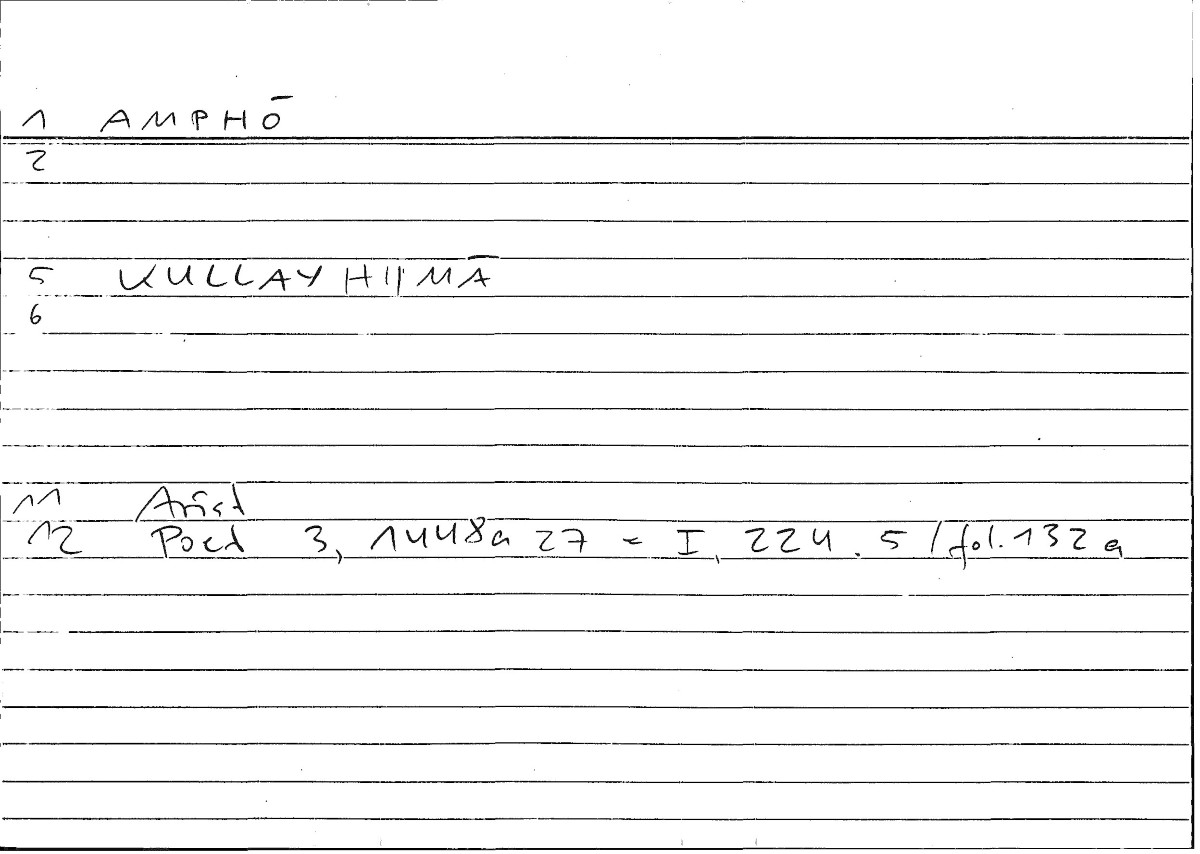 1 AMPHŌ
2
5 KULLAY HIJMĀ
6
11 Arist
12 Poet 3, 1448a 27 = I, 224.5 / fol. 132a